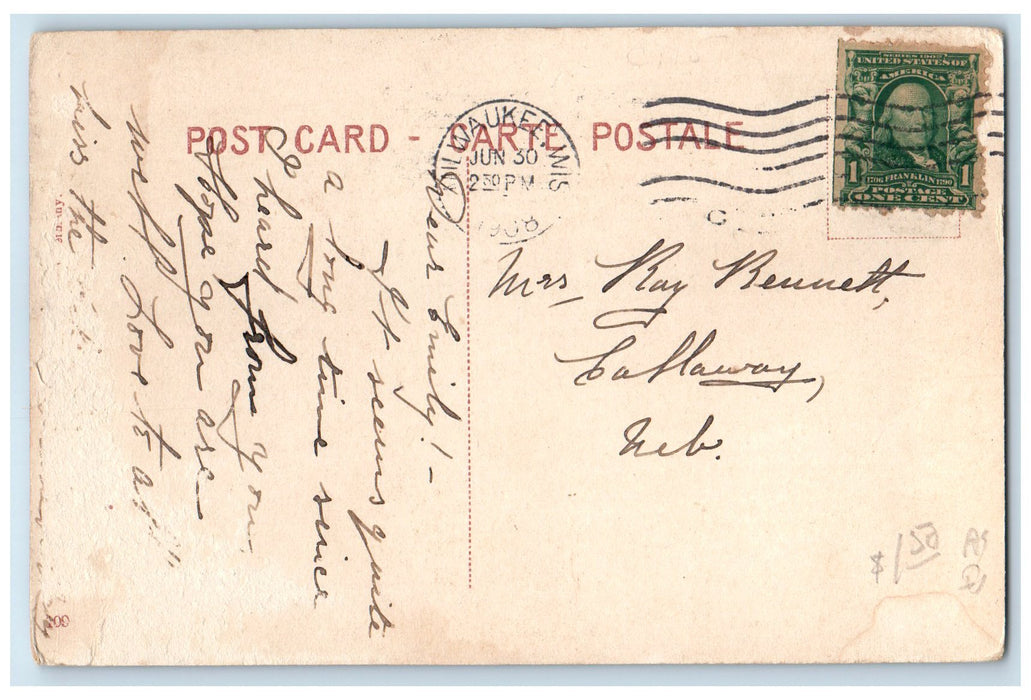 POST CARD - CARTE POSTALE
MILWAUKEE, WIS
JUN 30
2 30 PM
1908
SERIES 1902
UNITED STATES OF
AMERICA
1 1
1706 FRANKLIN 1790
POSTAGE
ONE CENT
Mrs, Ray Bennett,
Callaway,
Neb.
Dear Emily! -
It seems quite
a long time since
I heard from you.
Hope you are
well. Love to all.
Kiss the
$1 50